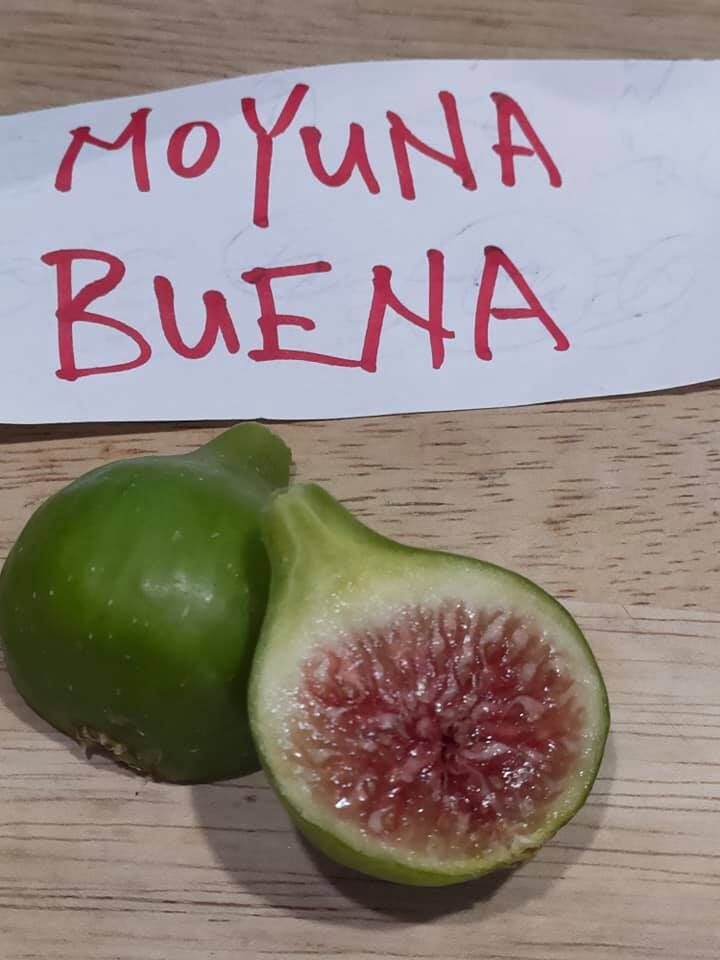 MOYUNA
BUENA